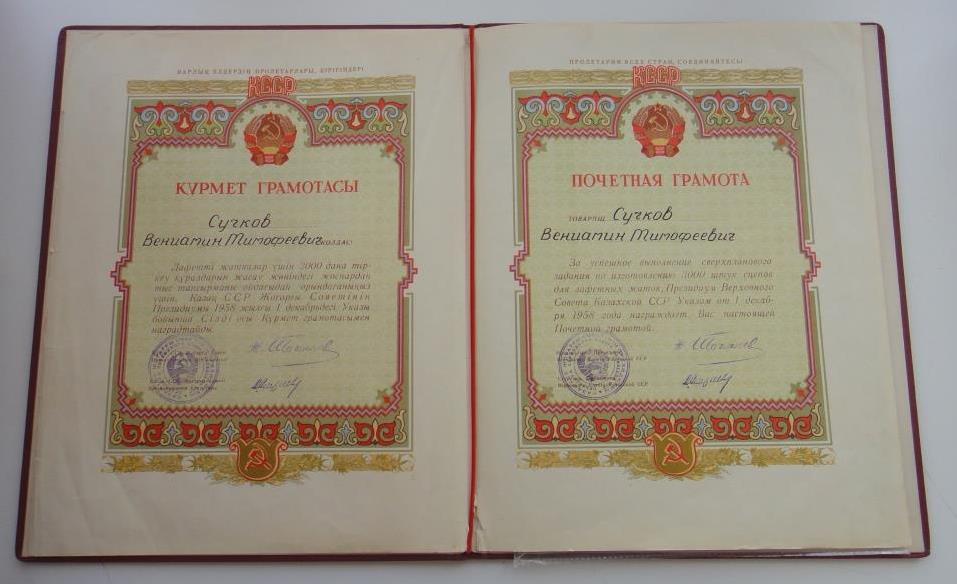 БАРЛЫҚ ЕЛДЕРДІҢ ПРОЛЕТАРЛАРЫ, БІРІГІҢДЕР!
КССР
ҚҰРМЕТ ГРАМОТАСЫ
Сучков
Вениамин Тимофеевич ЖОЛДАС!
Лафетті жаткалар үшін 3000 дана тір-
кеу құралдарын жасау жөніндегі жоспардан
тыс тапсырманы ойдағыдай орындағаныңыз
үшін, Қазақ ССР Жоғарғы Советінің
Президиумы 1958 жылғы 1 декабрьдегі Указы
бойынша Сізді осы Құрмет грамотасымен
наградтайды.
ПРОЛЕТАРИИ ВСЕХ СТРАН, СОЕДИНЯЙТЕСЬ!
КССР
ПОЧЕТНАЯ ГРАМОТА
ТОВАРИЩ Сучков
Вениамин Тимофеевич
За успешное выполнение сверхпланового
задания по изготовлению 3000 штук сцепов
для лафетных жаток, Президиум Верховного
Совета Казахской ССР Указом от 1 декаб-
ря 1958 года награждает Вас настоящей
Почетной грамотой.